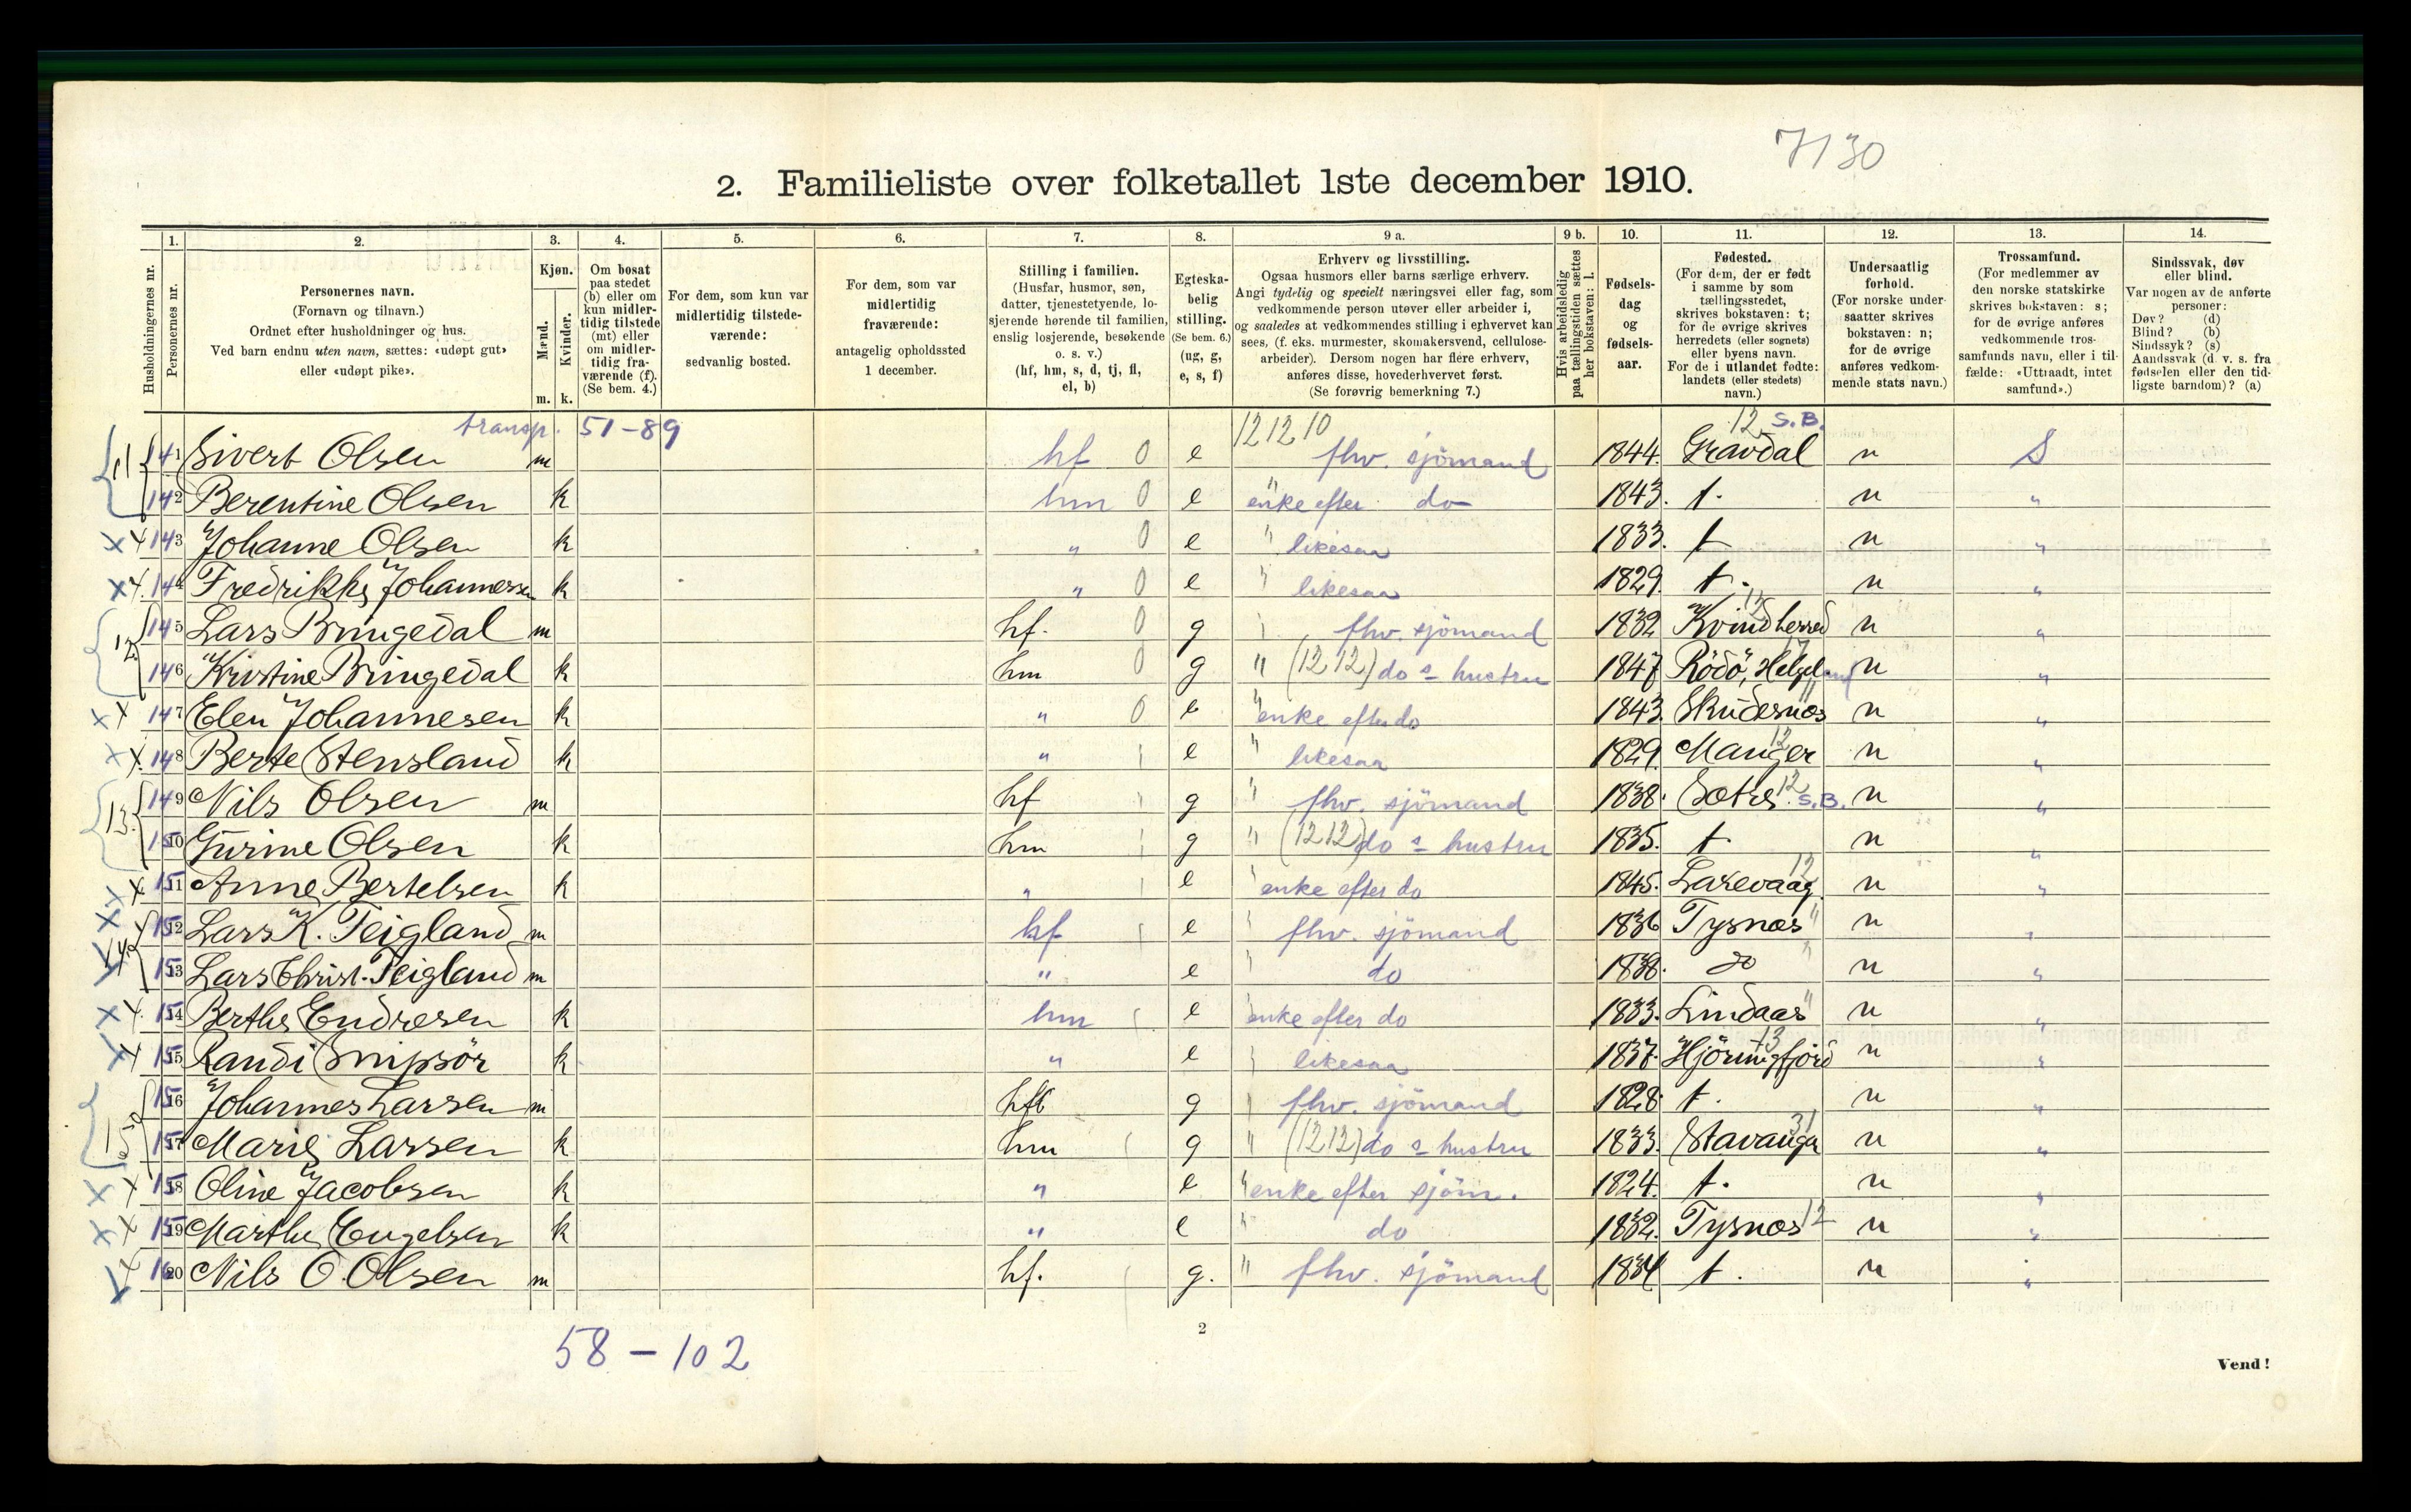 7130
2. Familieliste over folketallet 1ste december 1910.
1. 2. 3. 4. 5. 6. 7. 8. 9 a. 9 b. 10. 11. 12. 13. 14.
Husholdningernes nr.
Personernes nr.
Personernes navn.
(Fornavn og tilnavn.)
Ordnet efter husholdninger og hus.
Ved barn endnu uten navn, sættes: «udøpt gut»
eller «udøpt pike».
Kjøn.
Mænd.
Kvinder.
m. k.
Om bosat
paa stedet
(b) eller om
kun midler-
tidig tilstede
(mt) eller
om midler-
tidig fra-
værende (f).
(Se bem. 4.)
For dem, som kun var
midlertidig tilstede-
værende:
sedvanlig bosted.
For dem, som var
midlertidig
fraværende:
antagelig opholdssted
1 december.
Stilling i familien.
(Husfar, husmor, søn,
datter, tjenestetyende, lo-
sjerende hørende til familien,
enslig losjerende, besøkende
o. s. v.)
(hf, hm, s, d, tj, fl,
el, b)
Egteska-
belig
stilling.
(Se bem. 6.)
(ug, g,
e, s, f)
Erhverv og livsstilling.
Ogsaa husmors eller barns særlige erhverv.
Angi tydelig og specielt næringsvei eller fag, som
vedkommende person utøver eller arbeider i,
og saaledes at vedkommendes stilling i erhvervet kan
sees, (f. eks. murmester, skomakersvend, cellulose-
arbeider). Dersom nogen har flere erhverv,
anføres disse, hovederhvervet først.
(Se forøvrig bemerkning 7.)
Hvis arbeidsledig
paa tællingstiden sættes
her bokstaven: l.
Fødsels-
dag
og
fødsels-
aar.
Fødested.
(For dem, der er født
i samme by som
tællingsstedet,
skrives bokstaven: t;
for de øvrige skrives
herredets (eller sognets)
eller byens navn.
For de i utlandet fødte:
landets (eller stedets)
navn.)
Undersaatlig
forhold.
(For norske under-
saatter skrives
bokstaven: n;
for de øvrige
anføres vedkom-
mende stats navn.)
Trossamfund.
(For medlemmer av
den norske statskirke
skrives bokstaven: s;
for de øvrige anføres
vedkommende tros-
samfunds navn, eller i til-
fælde: «Uttraadt, intet
samfund».)
Sindssvak, døv
eller blind.
Var nogen av de anførte
personer:
Døv? (d)
Blind? (b)
Sindssyk? (s)
Aandssvak (d. v. s. fra
fødselen eller den tid-
ligste barndom)? (a)
transp. 51-89 12 12 10 12 S.B.
11 141 Sivert Olsen m hf 0 e fhv. sjömand 1844. Gravdal n S
142 Berentine Olsen k hm 0 e " enke efter do 1843. t. n "
x x 143 Johanne Olsen k " 0 e " likesaa 1833. t n "
x x. 144 Fredrikke Johannessen k " 0 e " likesaa 1829. t. n "
12 145 Lars Bringedal m hf. 0 g " fhv. sjömand 1832 Kvindherred 12 n "
146 Kristine Bringedal k hm 0 g " (12 12) do s hustru 1847 Rödö, Helgeland 17 n "
x x 147 Elen Johannesen k " 0 e " enke efter do 1843. Skudesnæs 11 n "
x x. 148 Berte Stensland k " e " likesaa 1829. Manger 12 n "
13. 149 Nils Olsen m hf g " fhv. sjömand 1838. Sotre 12 S.B. n "
150 Gurine Olsen k hm g " (12 12) do s hustru 1835. t. n "
x x 151 Anne Bertelsen k " e " enke efter do 1845. Laxevaag 12 n "
x 14 152 Lars K. Teigland m hf e " fhv. sjömand 1836 Tysnæs " n "
153 Lars Christ. Teigland m " e " do 1838. do " n "
x x. 154 Berthe Endresen k hm e " enke efter do 1833. Lindaas " n "
x x 155 Randi Snipsör k " e " likesaa 1837. Hjörungfjord 13 n "
15 156 Johannes Larsen m hf g " fhv. sjömand 1828. t. n "
157 Marie Larsen k hm g " (12 12) do s hustru 1833. Stavanger 31 n "
x x 158 Oline Jacobsen k " e " enke efter sjöm. 1824. t. n "
x x 159 Marthe Engelsen k " e " do 1832. Tysnæs 12 n "
x 160 Nils O. Olsen m hf. g. " fhv. sjömand 1834 t. n "
58 - 102
2
Vend!